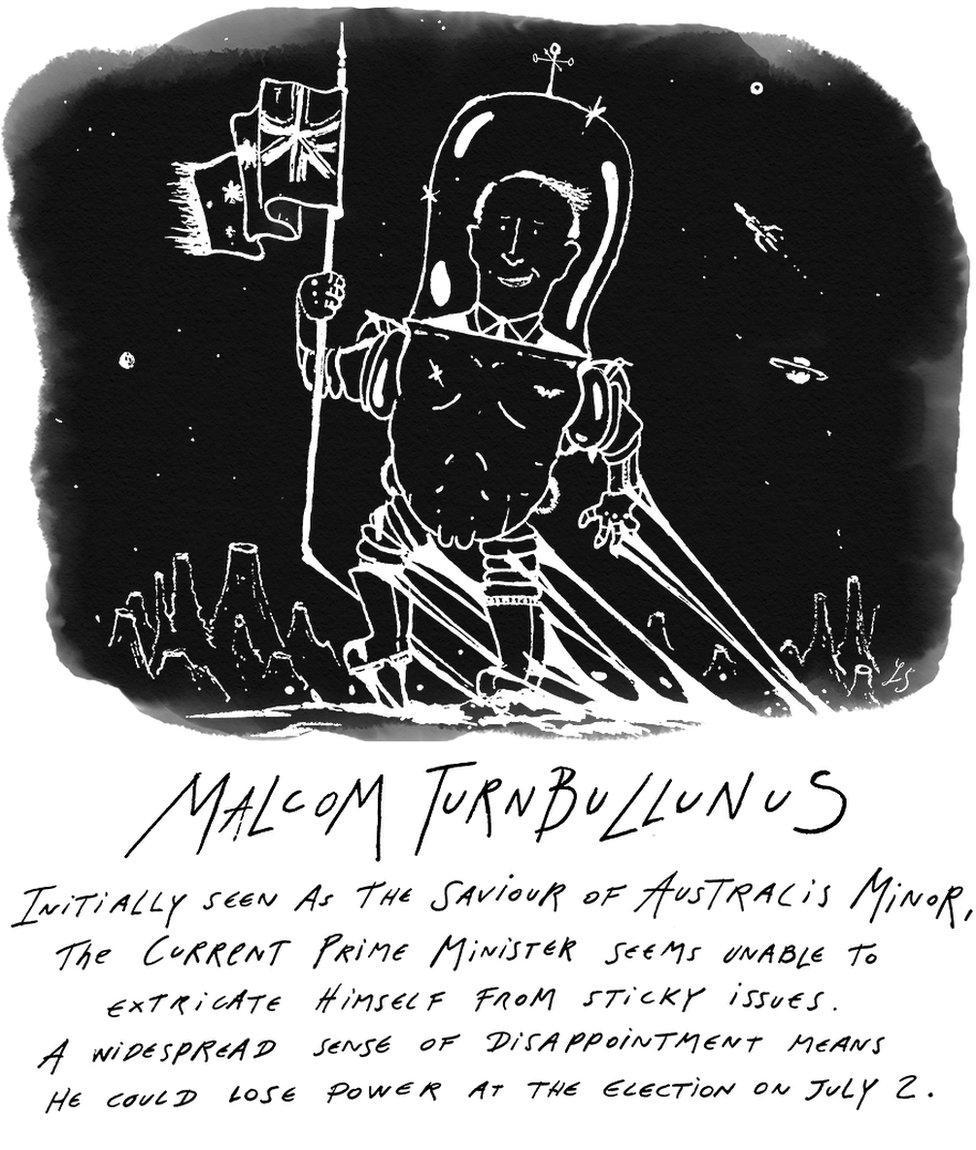 LS
MALCOM TURNBULLUNUS
INITIALLY SEEN AS THE SAVIOUR OF AUSTRALIS MINOR,
THE CURRENT PRIME MINISTER SEEMS UNABLE TO
EXTRICATE HIMSELF FROM STICKY ISSUES.
A WIDESPREAD SENSE OF DISAPPOINTMENT MEANS
HE COULD LOSE POWER AT THE ELECTION ON JULY 2.